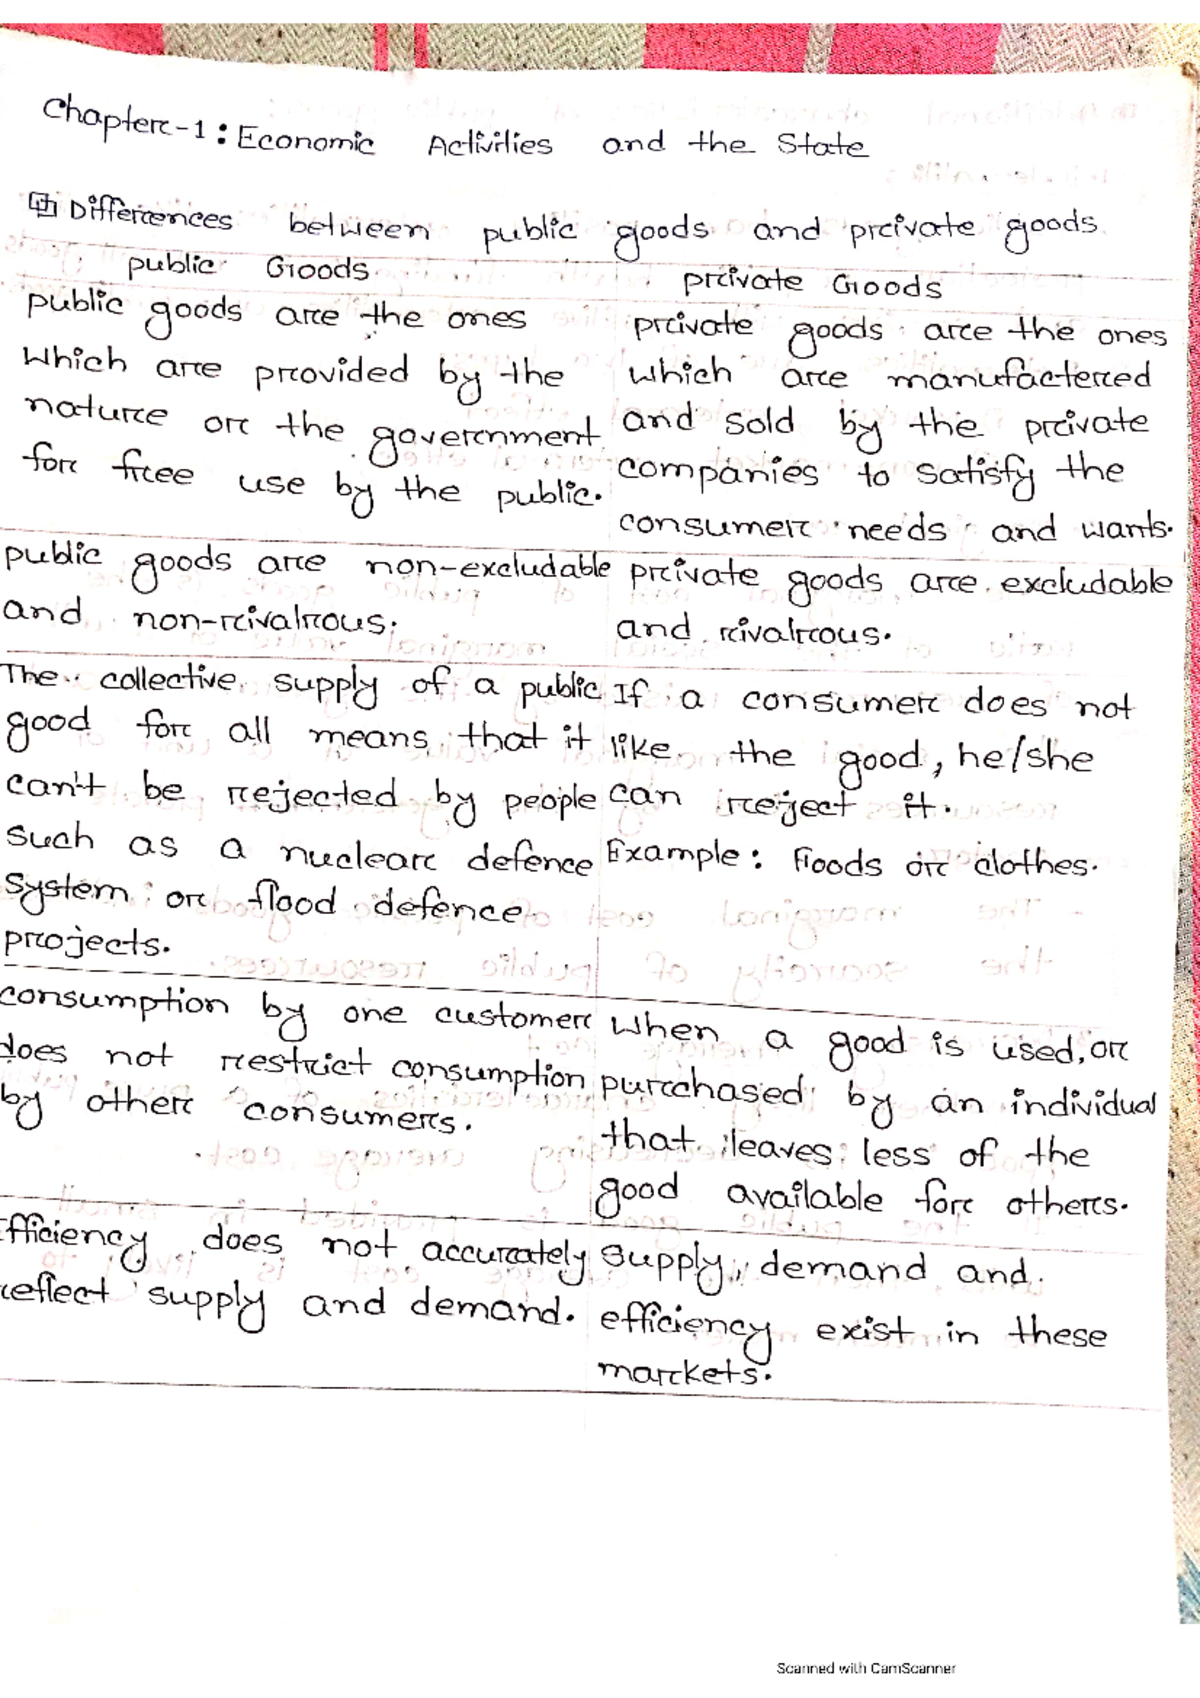 Chapter-1: Economic Activities and the State
Differences between public goods and private goods
public Goods
private Goods
public goods are the ones
which are provided by the
nature or the government
for free use by the public.
private goods are the ones
which are manufactered
and sold by the private
companies to satisfy the
consumer needs and wants.
public goods are non-excludable
and non-rivalrous.
private goods are excludable
and rivalrous.
The collective supply of a public
good for all means that it
can't be rejected by people
such as a nuclear defence
system or flood defence
projects.
If a consumer does not
like the good, he/she
can reject it.
Example: Foods or clothes.
consumption by one customer
does not restrict consumption
by other consumers.
when a good is used, or
purchased by an individual
that leaves less of the
good available for others.
Efficiency does not accurately
reflect supply and demand.
supply, demand and
efficiency exist in these
markets.
Scanned with CamScanner